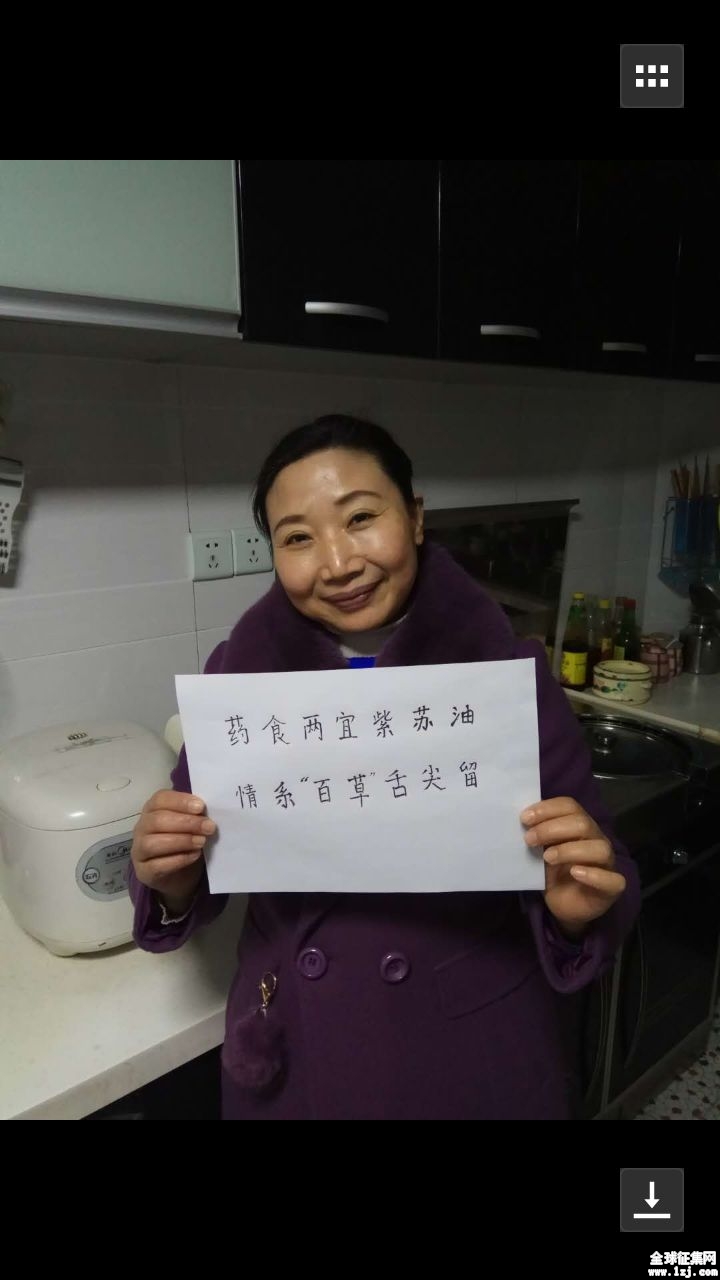 药食两宜紫苏油
情系“百草”舌尖留
全球征集网
www.1zj.com